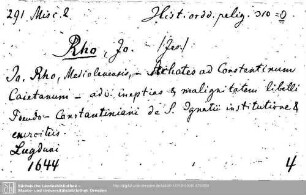 291 Misc. 2
Hist. ordd. relig. 310 = 0
Rho, Jo. /Jes./
Jo. Rho, Mediolanensis, - Achates ad Constantinum
Caietanum - adv. ineptias & malignitatem libelli
Pseudo-Constantiniani de S. Ignatii institutione &
exercitiis
Lugduni
1644 4
Sächsische Landesbibliothek -
Staats- und Universitätsbibliothek Dresden